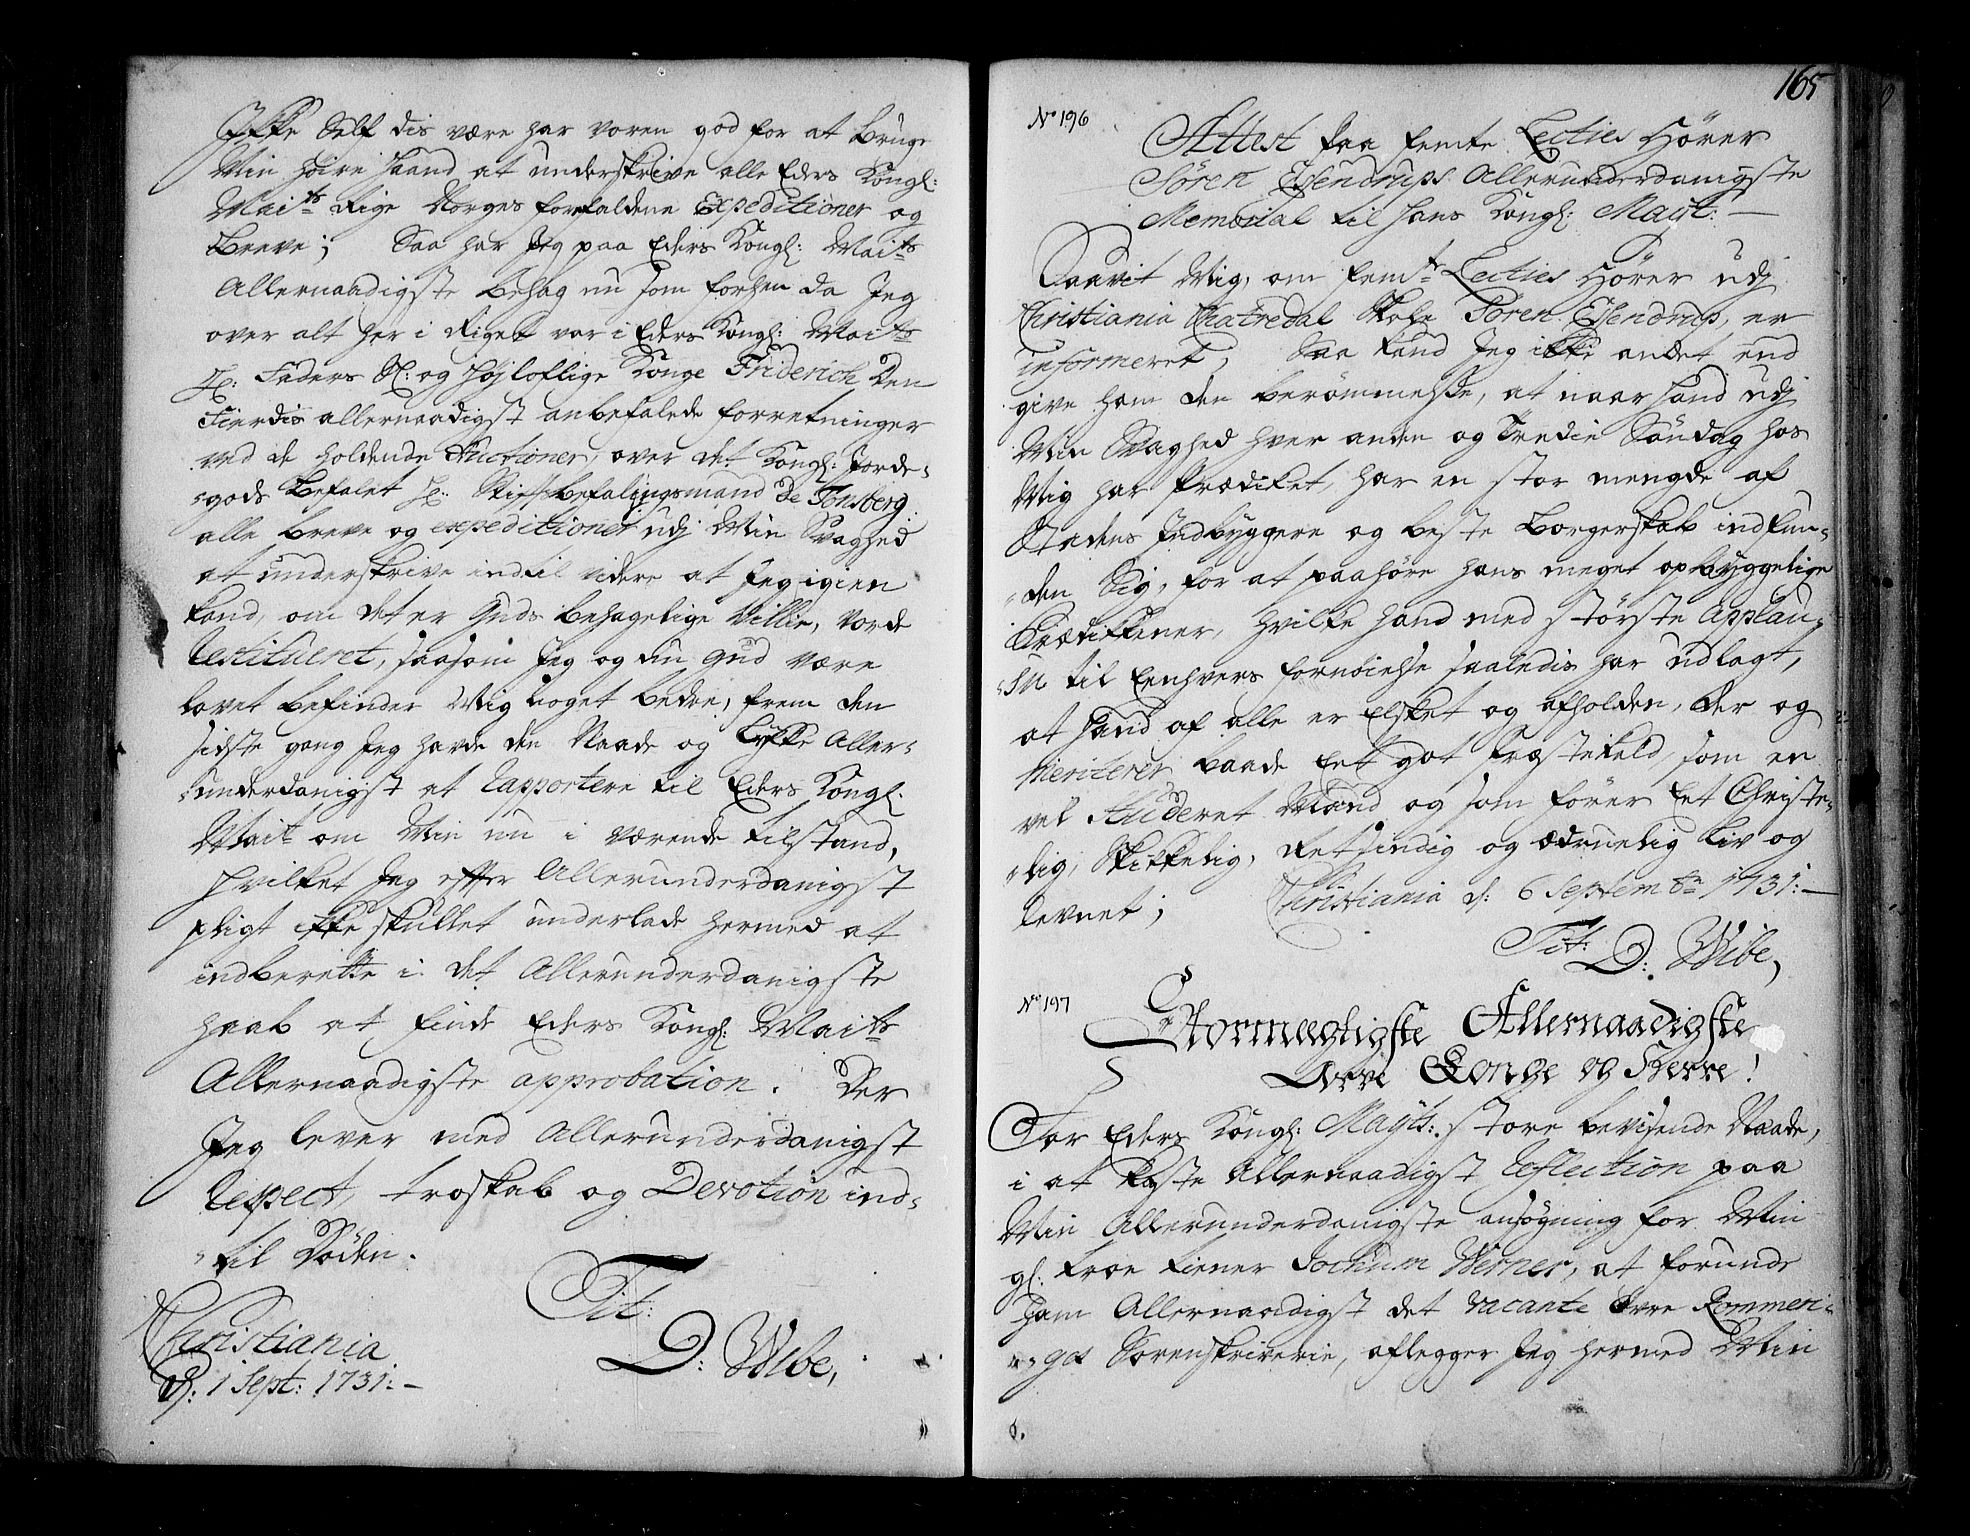 Ikke Self dis være har voren god for at bruge
Min höire Haand at underskrive alle Eders Kongl:
Maits Rige Norges forefaldene Expeditioner og
Breve; Saa har Jeg paa Eders Kongl: Maits
Allernaadigste behag nu som forhen da Jeg
over alt her i Riget var i Eders Kongl: Maits
H: Faders Sl: og Højloflige Konge Friderich Den
Fierdis allernaadigst anbefalede forretninger
ved de holdende Auctioner, over det Kongl: Jorde-
gods befalet H: Stiftsbefalingsmand De Tonsberg
alle breve og expeditioner udj Min Svaghed
at underskrive indtil videre at Jeg igien
kand, om det er Guds behagelige Villie, vorde
restitueret, saasom Jeg og din Gud være
lovet befinder Mig noget bedre, frem den
sidste gang Jeg havde den Naade og Lykke Aller-
underdanigst at rapportere til Eders Kongl.
Mait om Min nu i værende tilstand,
hvilket Jeg efter Allerunderdanigst
pligt ikke skullet underlade hermed at
indberette i det Allerunderdanigste
haab at finde Eders Kongl: Maits
Allernaadigste approbation. Der
Jeg lever med Allerunderdanigst
respect, troskab og Devotion ind-
til Döden.
Tit:
D: Wibe,
Christiania
d: 1 Sept: 1731:-
165
No 196
Attest paa femte Lecties Hörer
Sören Esendrups Allerunderdanigste
Memorial til Hans Kongl: Mayt:
Saavit Mig, om femte Lecties Hörer udj
Christiania Chatredal Skole Sören Esendrup, er
informeret; Saa kand Jeg ikke andet end
give ham den berömmelse, at naar Hand udj
Min Svaghed hver anden og Tredie Söndag hos
Mig har Prædiket, har en stor mengde af
Stadens Indbyggere og beste Borgerskab indfun-
den Sig, for at paahöre hans meget opbyggelige
Prædikkener, hvilke Hand med störste Applau-
su til Eenhvers fornöielse saaledis har udlagt,
at Hand af alle er Elsket og afholden, der og
Meriterer baade Eet got Præstekald, som en
vel Studeret Mand og som förer Eet Christe-
lig, Skikkelig, Retsindig og ædruelig Liv og
levnet; Christiania d: 6 Septembr 1731:-
Tit:
D: Wibe,
No 197
Stormægtigste Allernaadigste
Arve Konge og Herre!
For Eders Kongl: Mayts: store bevisende Naade,
i at kaste Allernaadigst reflection paa
Min Allerunderdanigste ansögning for Min
gl: troe tiener Jochum Werner, at forunde
ham Allernaadigst det vacante Övre Rommeri-
gcs Sorenskriverie, aflegger Jeg hermed Min